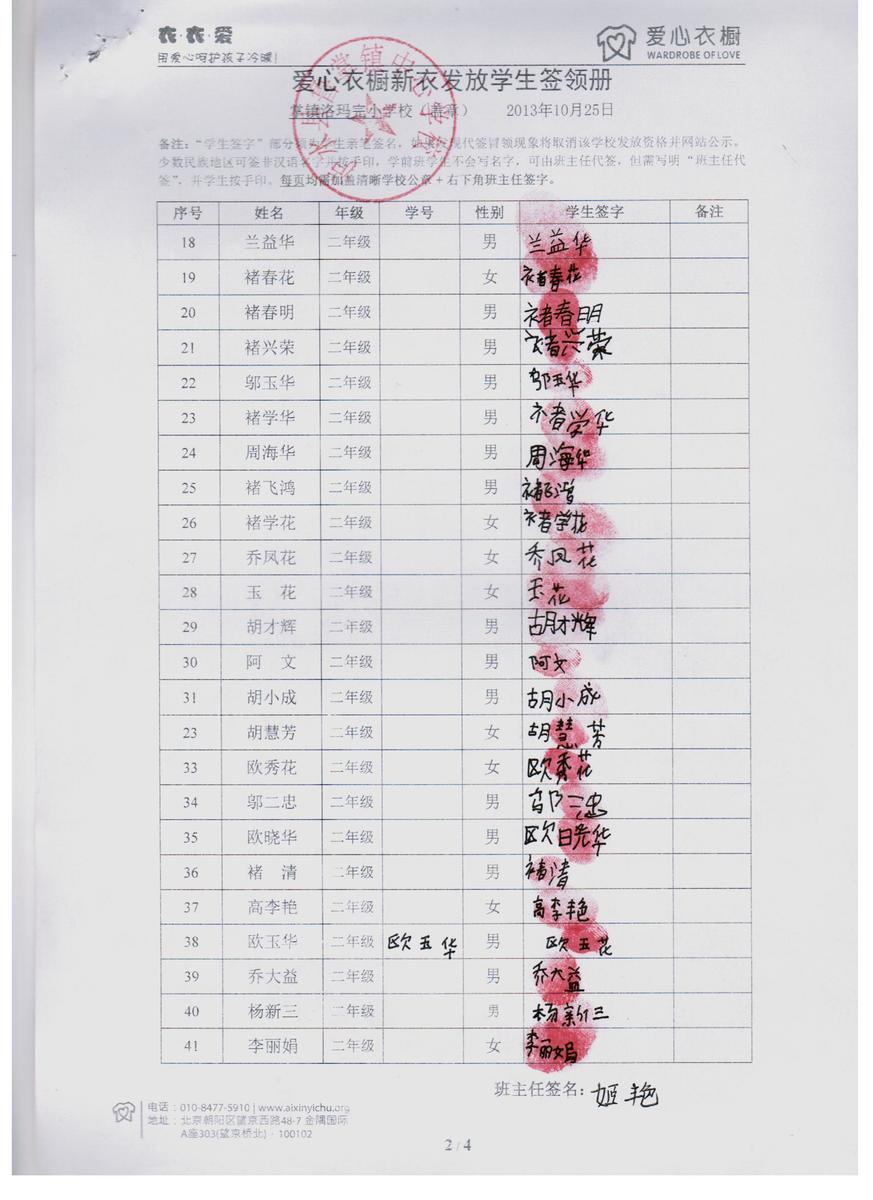 衣·衣·爱
用爱心呵护孩子冷暖!
爱心衣橱
WARDROBE OF LOVE
爱心衣橱新衣发放学生签领册
掌镇洛玛完小学校（盖章） 2013年10月25日
备注：“学生签字”部分须为学生亲笔签名，如果发现代签冒领现象将取消该学校发放资格并网站公示。
少数民族地区可签非汉语名字并按手印，学前班学生不会写名字，可由班主任代签，但需写明“班主任代
签”，并学生按手印。每页均需加盖清晰学校公章+右下角班主任签字。
序号 姓名 年级 学号 性别 学生签字 备注
18 兰益华 二年级 男 兰益华
19 褚春花 二年级 女 褚春花
20 褚春明 二年级 男 褚春明
21 褚兴荣 二年级 男 褚兴荣
22 邬玉华 二年级 男 邬玉华
23 褚学华 二年级 男 褚学华
24 周海华 二年级 男 周海华
25 褚飞鸿 二年级 男 褚飞鸿
26 褚学花 二年级 女 褚学花
27 乔凤花 二年级 女 乔凤花
28 玉 花 二年级 女 玉花
29 胡才辉 二年级 男 胡才辉
30 阿 文 二年级 男 阿文
31 胡小成 二年级 男 胡小成
23 胡慧芳 二年级 女 胡慧芳
33 欧秀花 二年级 女 欧秀花
34 邬二忠 二年级 男 邬二忠
35 欧晓华 二年级 男 欧晓华
36 褚 清 二年级 男 褚清
37 高李艳 二年级 女 高李艳
38 欧玉华 二年级 欧五华 男 欧五花
39 乔大益 二年级 男 乔大益
40 杨新三 二年级 男 杨新三
41 李丽娟 二年级 女 李丽娟
班主任签名：姬艳
电话：010-8477-5910 | www.aixinyichu.org
地址：北京朝阳区望京西路48-7 金隅国际
A座303(望京桥北)·100102
2 / 4